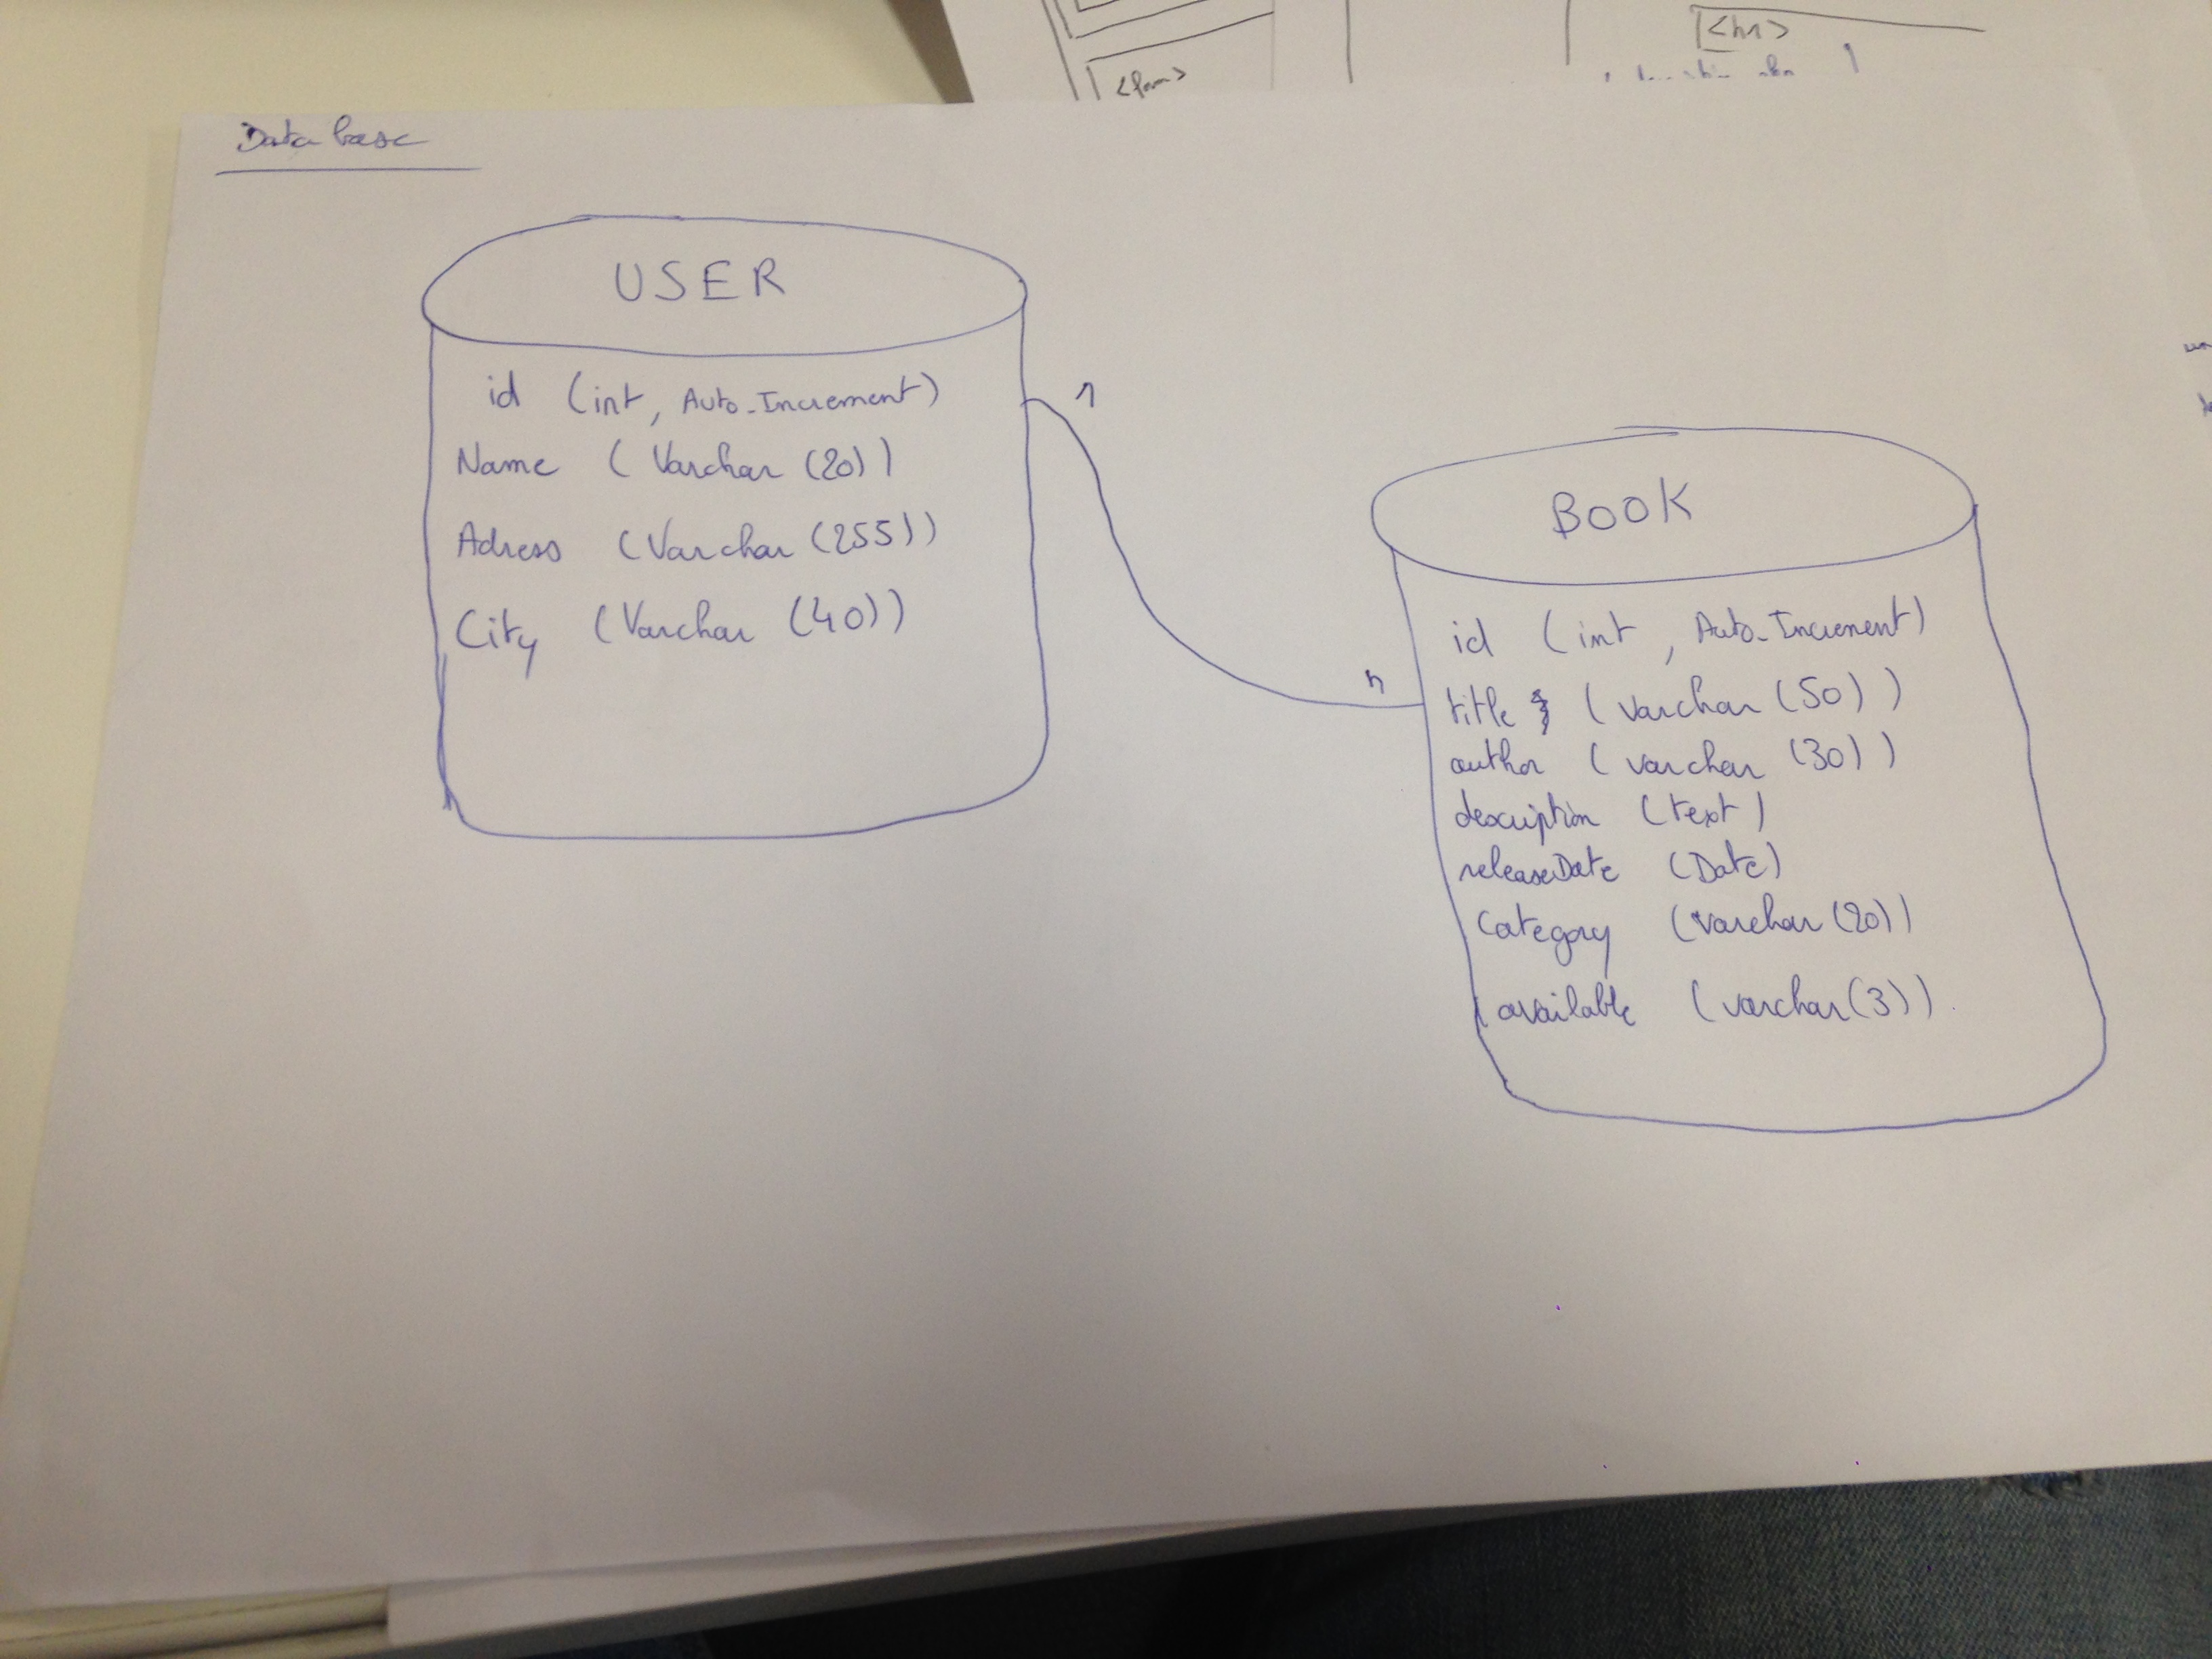 <form>
<h1>
Database
USER
id (int, Auto_Increment)
Name (Varchar (20))
Adress (Varchar (255))
City (Varchar (40))
1
n
BOOK
id (int, Auto_Increment)
title (varchar (50))
author (varchar (30))
description (text)
releaseDate (Date)
Category (varchar (20))
available (varchar (3)).